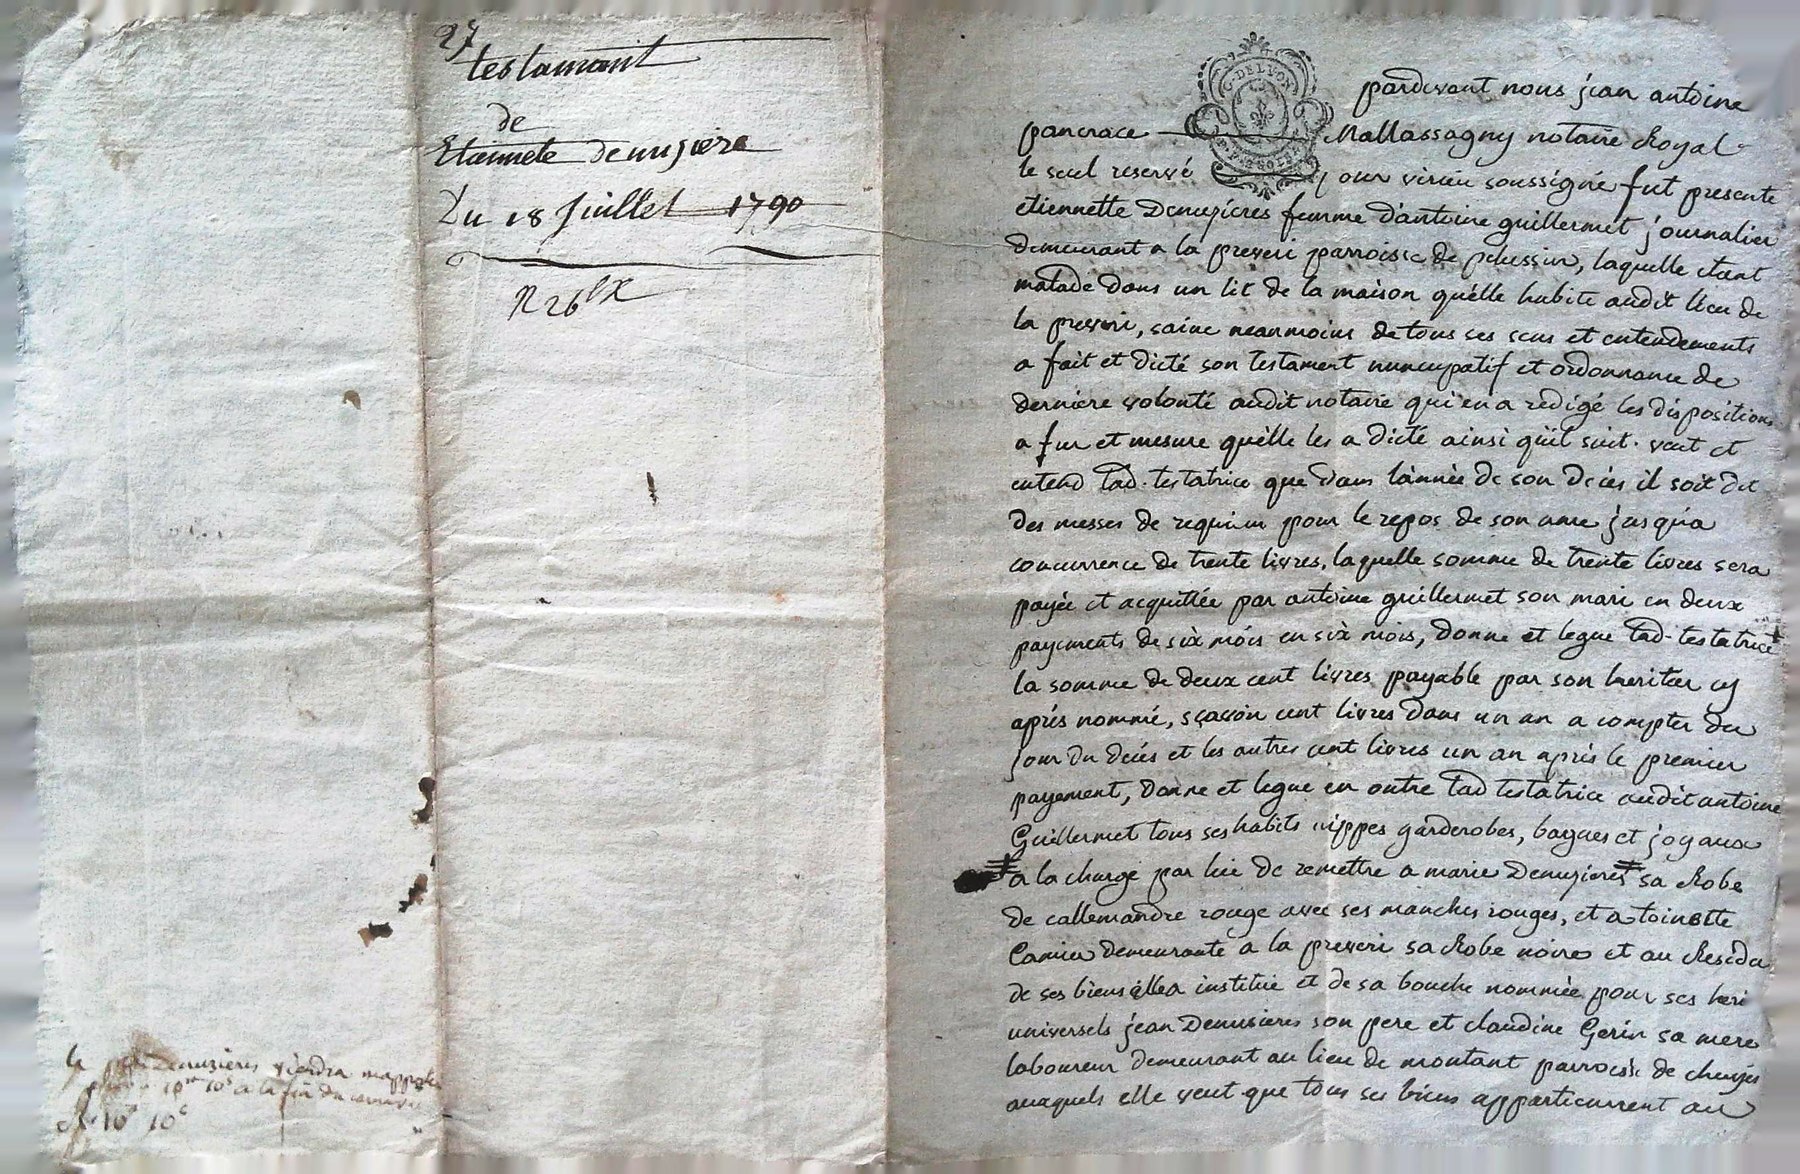 27
testamant
de
Etiennete denusiere
Du 18 Juillet 1790
R 26
G. DE LYON
pardevant nous jean antoine
pancrace Mallassagny notaire Royal
le seul reservé pour virieu soussigné fut presente
etiennette Denuzieres femme d'antoine guillermet journalier
demeurant a la preveri parroisse de pelussin, laquelle etant
malade dans un lit de la maison qu'elle habite audit lieu de
la preveri, saine neanmoins de tous ses sens et entendements
a fait et dicté son testament nuncupatif et ordonnance de
derniere volonté audit notaire qui en a redigé les dispositions
a fur et mesure qu'elle les a dicté ainsi qu'il suit. veut et
entend lad. testatrice que dans l'année de son deces il soit dit
des messes de requiem pour le repos de son ame jusqu'a
concurrence de trente livres, laquelle somme de trente livres sera
payée et acquittée par antoine guillermet son mari en deux
payements de six mois en six mois, donne et legue lad. testatrice
la somme de deux cent livres payable par son heritier cy
aprés nommé, sçavoir cent livres dans un an a compter du
jour du decés et les autres cent livres un an aprés le premier
payement, donne et legue en outre lad testatrice audit antoine
Guillermet tous ses habits nippes garderobes, bagues et joyaux
a la charge par lui de remettre a marie Denuzieres sa Robe
de callemandre rouge avec ses manches rouges, et a toinette
demeurante a la preveri sa Robe noire et au Residu
de ses biens elle a institué et de sa bouche nommée pour ses heri
universels jean Denusieres son pere et claudine Gerin sa mere
laboureur demeurant au lieu de montant parroisse de chuyés
auxquels elle veut que tous ses biens appartiennent au
denuzieres viendra
10# 10s a la fin du
10# 10s